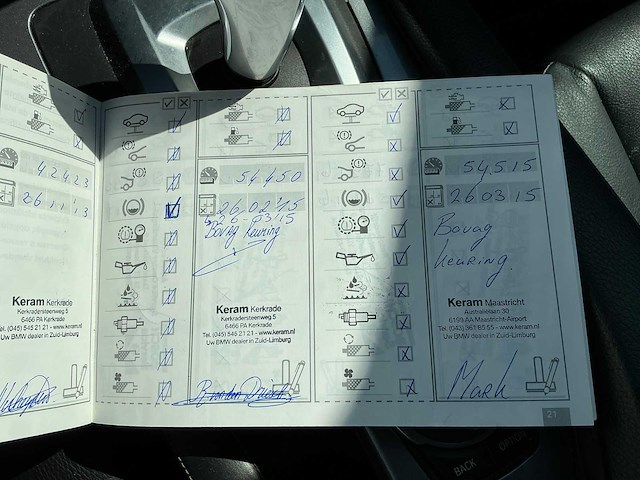 42423
26 11 13
54450
26 02 15
26-03/15
Bovag keuring
54515
26 03 15
Bovag
keuring.
Keram Kerkrade
Kerkradersteenweg 5
6466 PA Kerkrade
Tel. (045) 545 21 21 - www.keram.nl
Uw BMW dealer in Zuid-Limburg
Keram Kerkrade
Kerkradersteenweg 5
6466 PA Kerkrade
Tel. (045) 545 21 21 - www.keram.nl
Uw BMW dealer in Zuid-Limburg
Keram Maastricht
Australielaan 30
6199 AA Maastricht-Airport
Tel. (043) 361 85 55 - www.keram.nl
Uw BMW dealer in Zuid-Limburg
Mark
21
BACK
OPTION